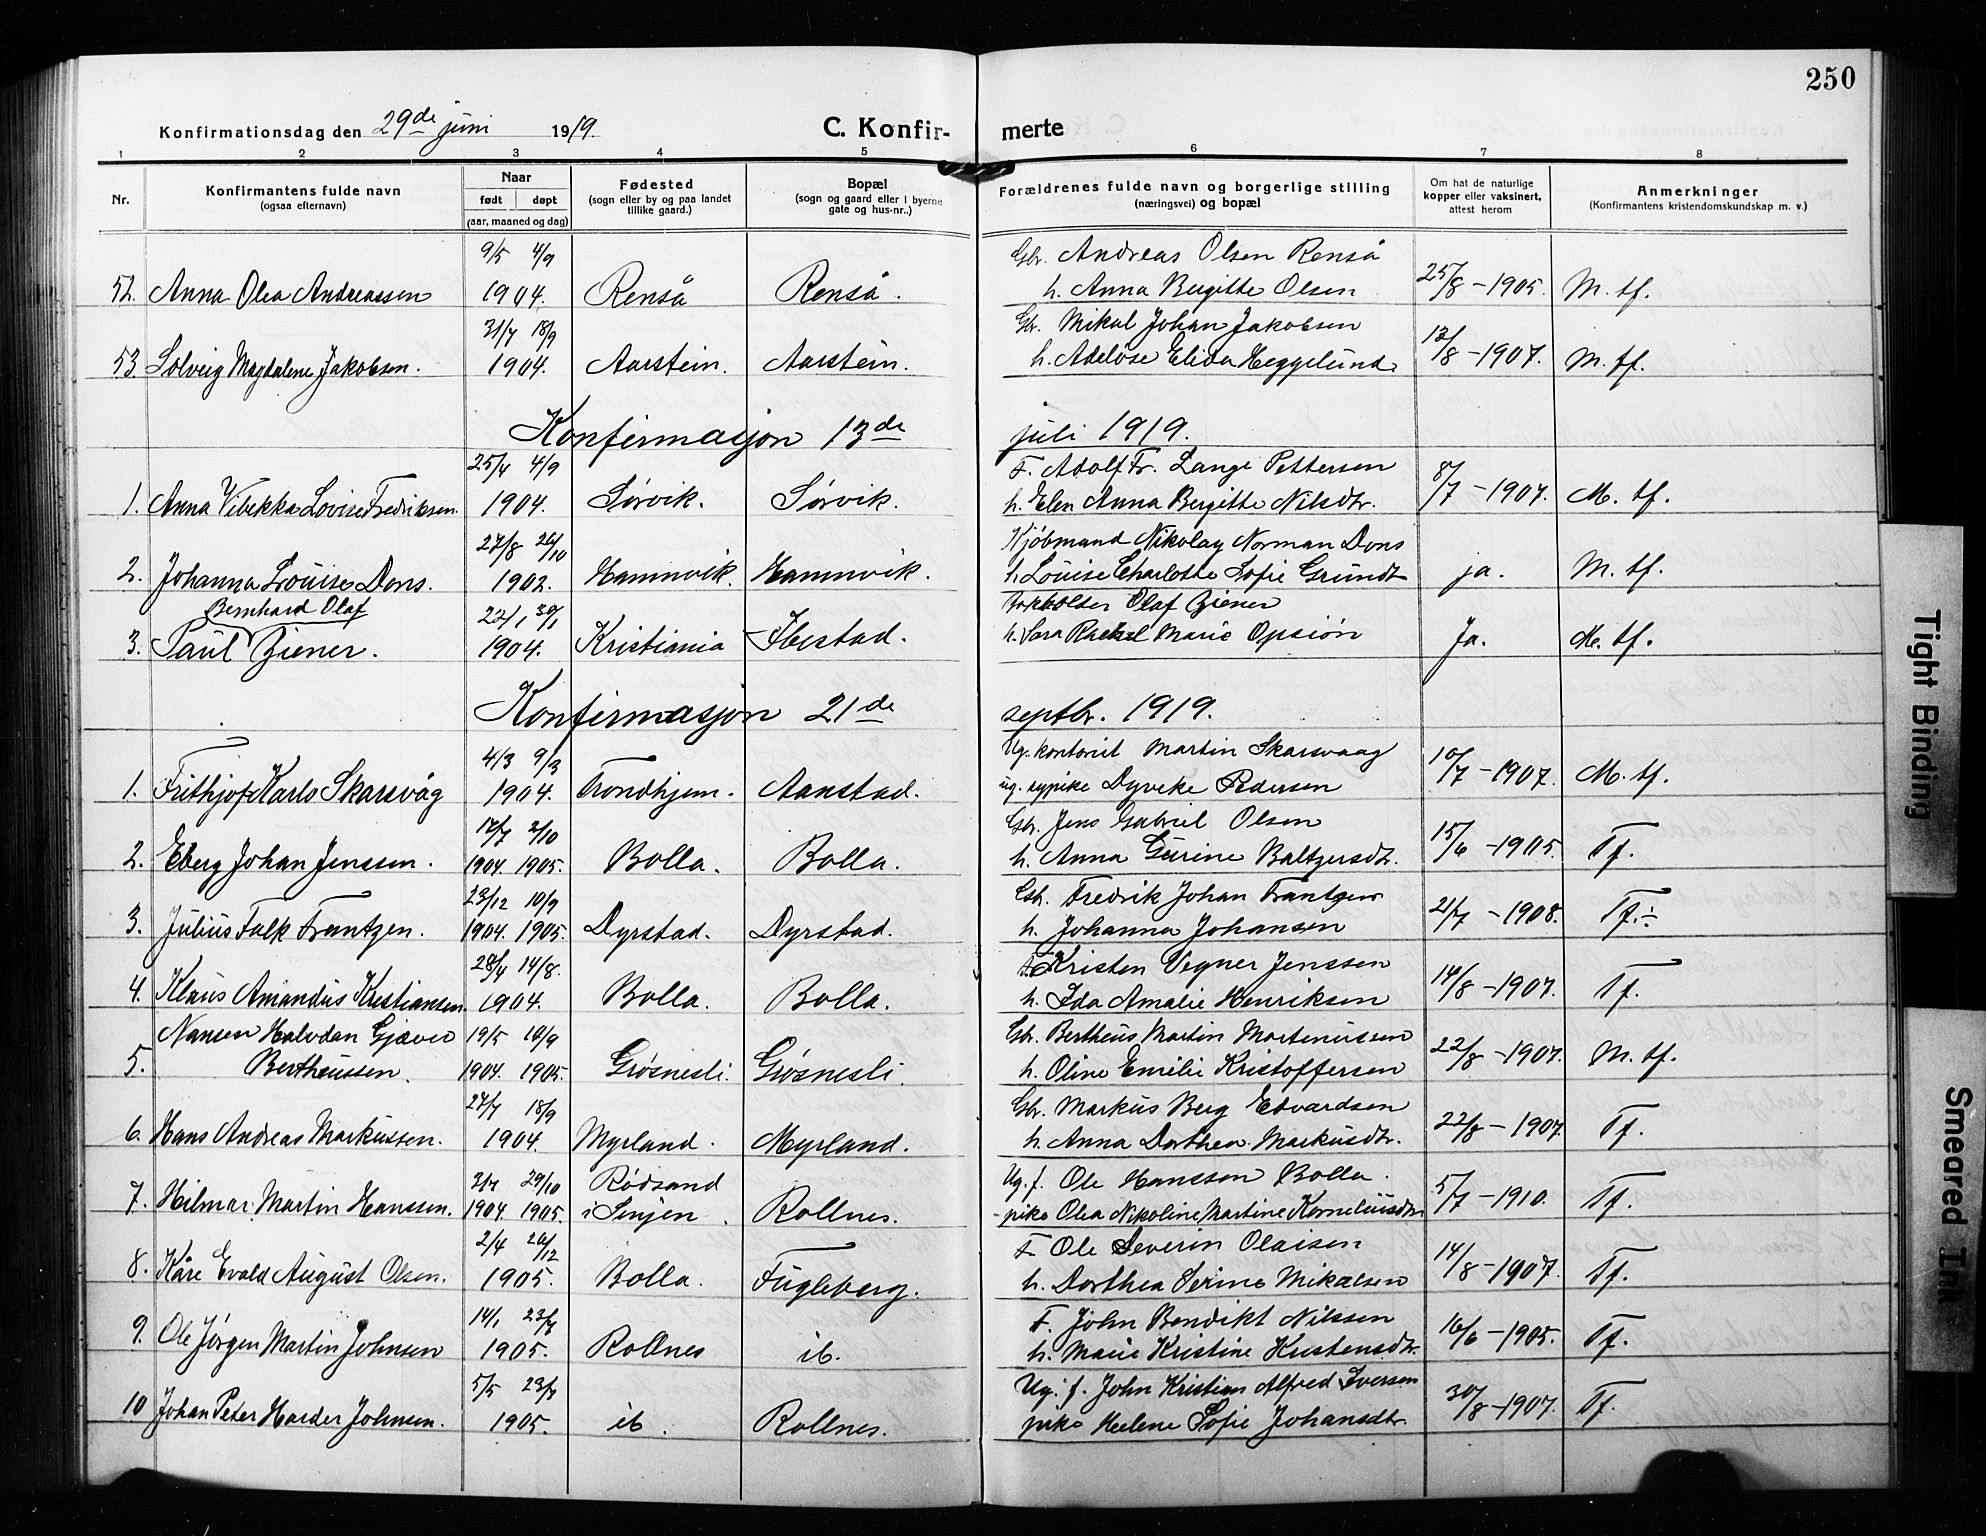 250
Konfirmationsdag den 29de juni 1919.
C. Konfir-
merte
1 2 3 4 5 6 7 8
Nr.
Konfirmantens fulde navn
(ogsaa efternavn)
Naar
født døpt
(aar, maaned og dag)
Fødested
(sogn eller by og paa landet
tillike gaard.)
Bopæl
(sogn og gaard eller i byerne
gate og hus-nr..)
Forældrenes fulde navn og borgerlige stilling
(næringsvei) og bopæl
Om hat de naturlige
kopper eller vaksinert,
attest herom
Anmerkninger
(Konfirmantens kristendomskundskap m. v.)
9/5 4/9 Gbr. Andreas Olsen Renså
52. Anna Olea Andreassen 1904. Renså Renså. h. Anna Bergitte Olsen 25/8 - 1905. M. tf.
31/7 18/9 Gbr. Mikal Johan Jakobsen
53 Solveig Magdalene Jakobsen. 1904. Aarstein. Aarstein. h. Adelöse Elida Heggelund 13/8 - 1907. M. tf.
Konfirmasjon 13de juli 1919.
25/4 4/9 F. Adolf Fr. Lange Pettersen
1. Anna Vibekka Lovise Fredriksen. 1904. Sørvik. Sørvik. h. Elen Anna Bergitte Nilsdtr. 8/7 - 1907. M. tf.
27/8 26/10 Kjøbmand Nikolay Norman Dons
2. Johanna Louise Dons. 1902. Hamnvik. Hamnvik. h. Louise Charlotte Sofie Grundt ja. M. tf.
Bernhard Olaf 22/1 30/1 Bokholder Olaf Ziener
3. Paul Ziener. 1904. Kristiania Ibestad. h. Sara Rachel Marie Opsiön Ja. M. tf.
Konfirmasjon 21de septbr. 1919.
4/3 9/3 Ug. kontorist Martin Skarsvaag
1. Frithjof Karlo Skarsvåg 1904. Trondhjem. Aanstad. ug. sypike Dyveke Pedersen 10/7 - 1907. M. tf.
17/7 2/10 Gbr. Jens Gabriel Olsen
2. Eberg Johan Jenssen. 1904 1905. Bolla. Bolla. h. Anna Gurine Baltzersdtr. 15/6 - 1905. Tf.
23/12 10/9 Gbr. Fredrik Johan Frantzen
3. Julius Falk Frantzen. 1904. 1905. Dyrstad. Dyrstad. h. Johanna Johansen 21/7 - 1908. Tf. ÷
28/4 14/8. Kristen Vegner Jenssen
4. Klaus Amandus Kristiansen. 1904. Bolla. Bolla. h. Ida Amalie Henriksen 14/8 - 1907. Tf.
Nansen Halvdan Gjæver 19/5 10/9 Gbr. Bertheus Martin Martenussen
5. Bertheussen. 1904. 1905. Grøsnesli. Grøsnesli. h. Oline Emilie Kristoffersen 22/8 - 1907. M. tf.
27/7 18/9 Gbr. Markus Berg Edvardsen
6. Hans Andreas Markussen. 1904. Myrland. Myrland. h. Anna Dorthea Markusdtr. 22/8 - 1907. Tf.
29/10 Rødsand Ug. f. Ole Hanssen Bolla.
7. Hilmar Martin Hanssen. 1904 1905. i Senjen. Rollnes. pike Olea Nikoline Martine Korneliusdtr. 5/7 - 1910. Tf.
2/4 26/12 F. Ole Severin Olaisen
8. Kåre Evald August Olsen. 1905. Bolla. Fugleberg. h. Dorthea Serine Mikalsen 14/8 - 1907. Tf.
14/1 23/7 F. John Bendikt Nilssen
9. Ole Jørgen Martin Johnsen 1905. Rollnes ib. h. Marie Kristine Kristensdtr. 16/6 - 1905. Tf.
5/5 23/7 Ug. f. John Kristian Alfred Iversen
10 Johan Peter Harder Johnsen. 1905. ib. Rollnes. pike Helene Sofie Johansdtr. 30/8 - 1907. Tf.
Tight Binding
Smeared Ink